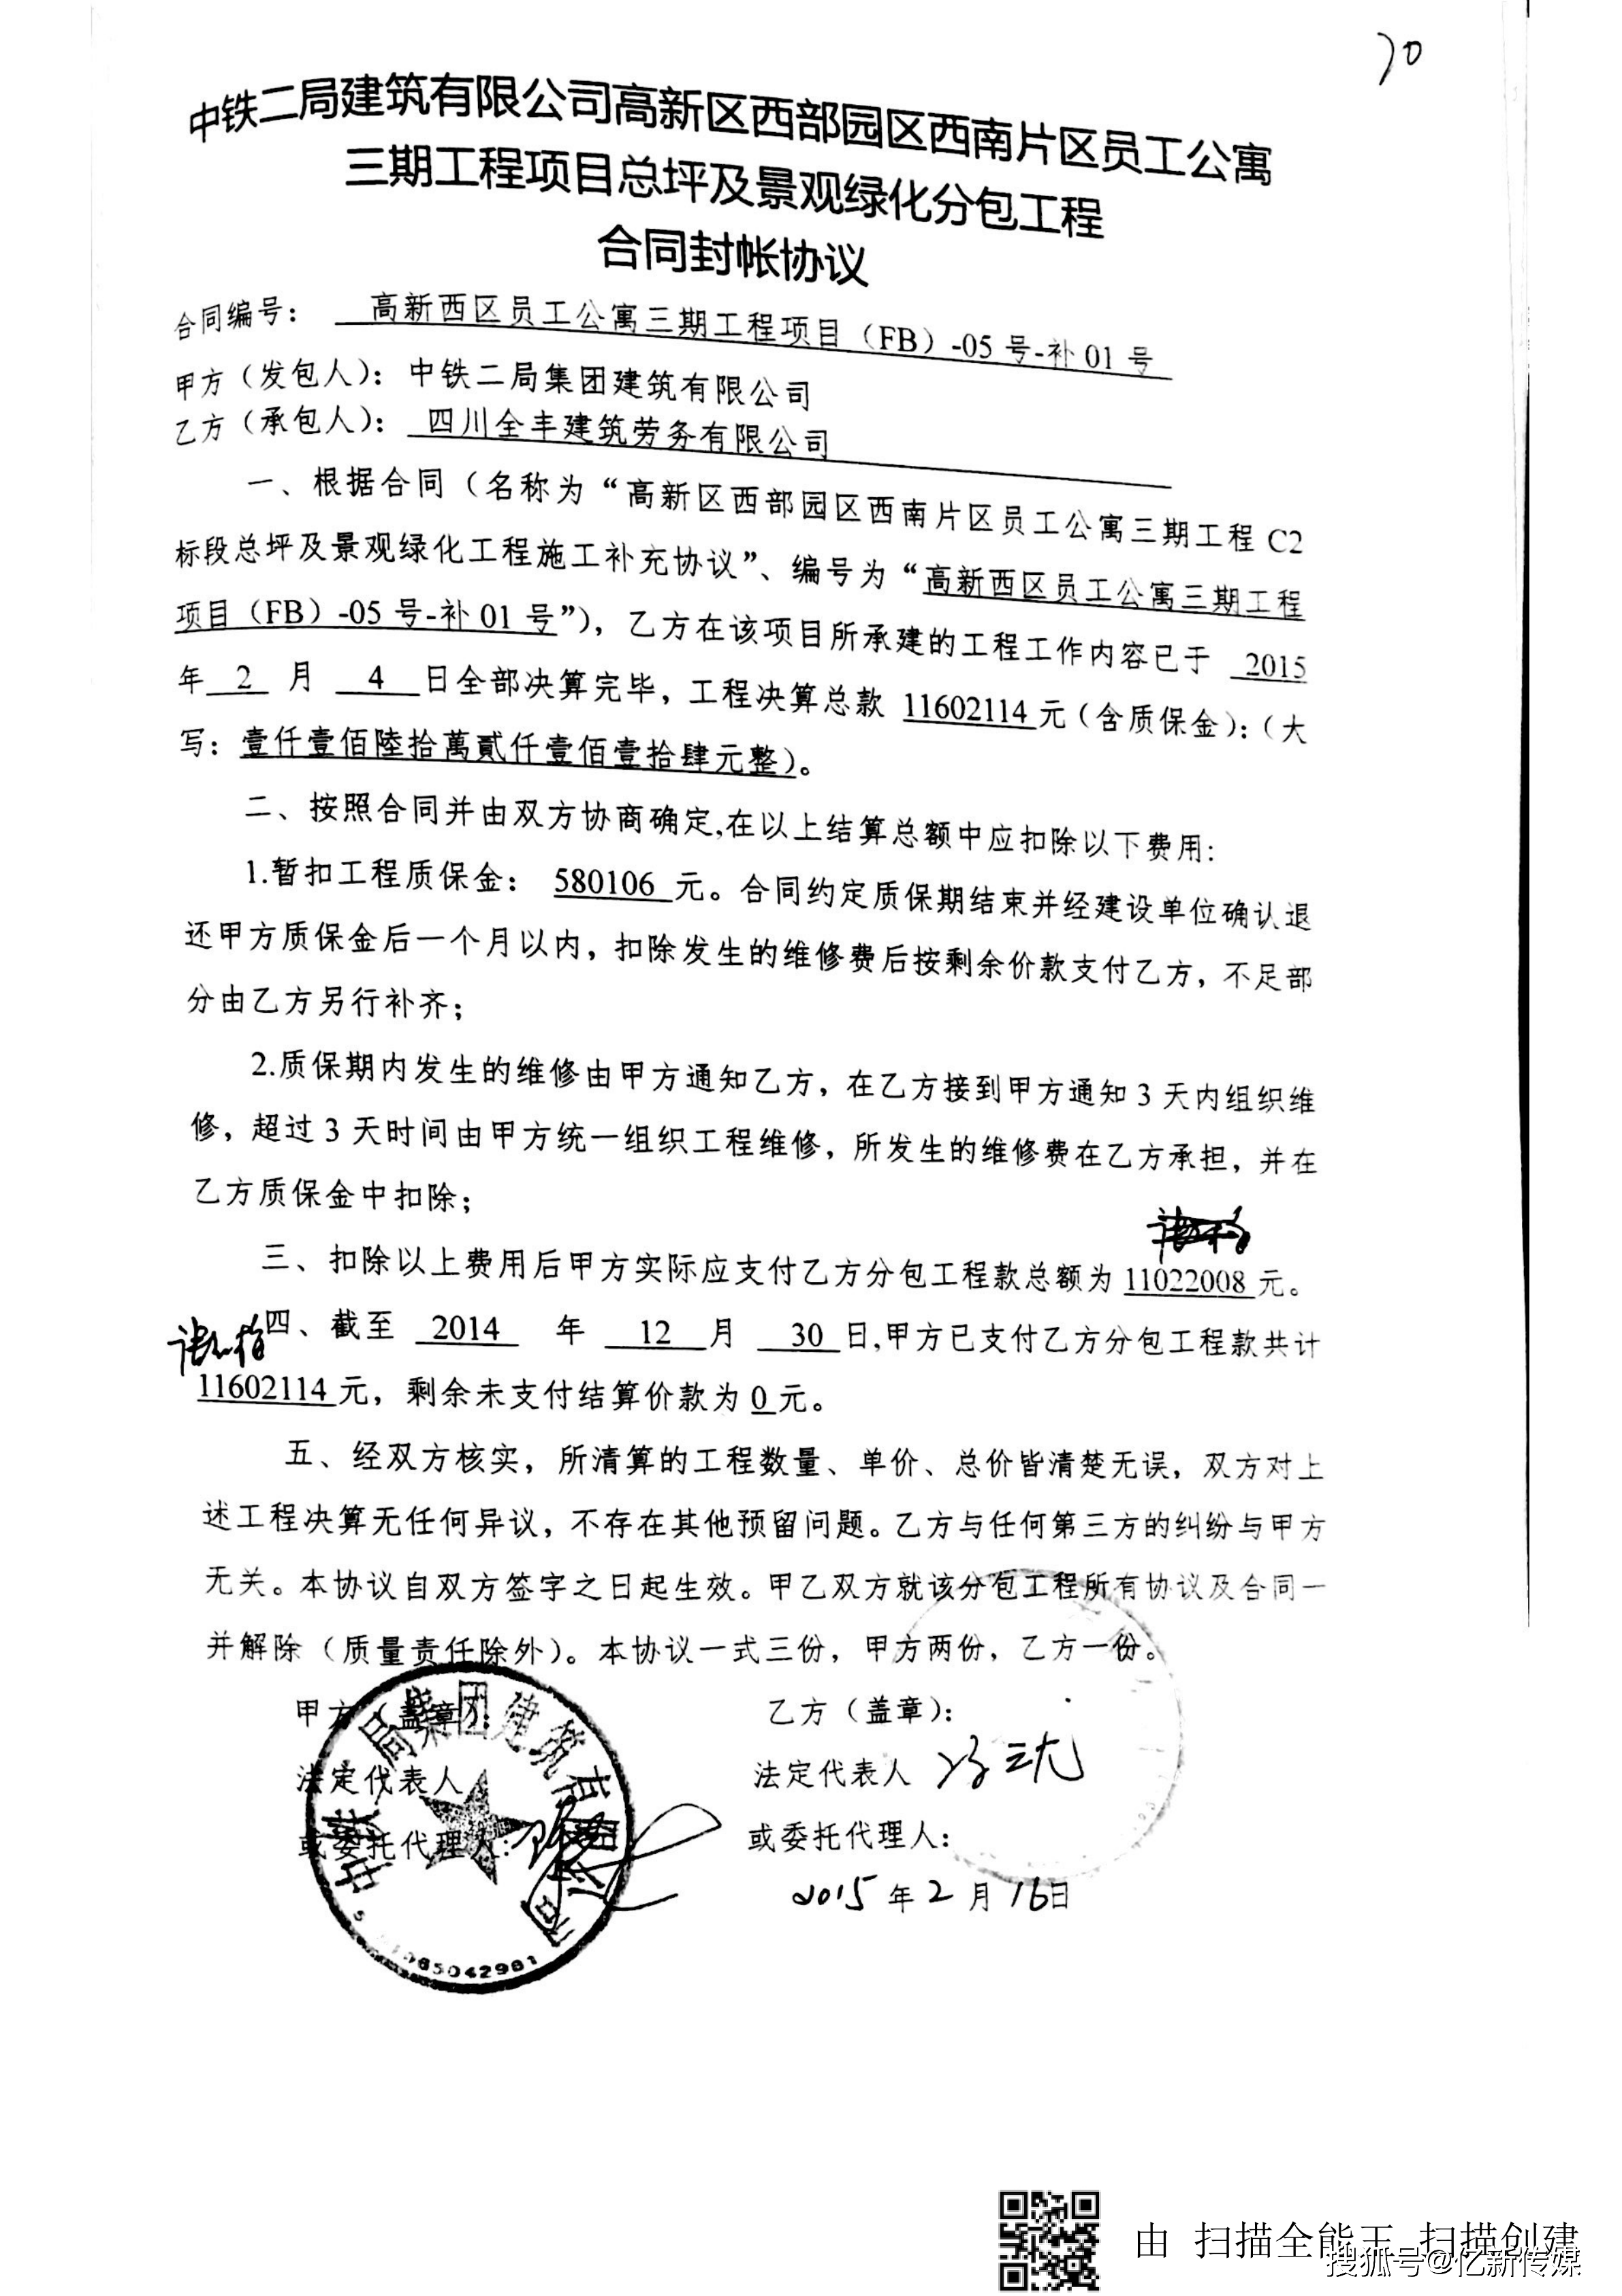 70
中铁二局建筑有限公司高新区西部园区西南片区员工公寓
三期工程项目总坪及景观绿化分包工程
合同封帐协议
合同编号： 高新西区员工公寓三期工程项目（FB）-05 号-补 01 号
甲方（发包人）：中铁二局集团建筑有限公司
乙方（承包人）： 四川全丰建筑劳务有限公司
一、根据合同（名称为“高新区西部园区西南片区员工公寓三期工程 C2
标段总坪及景观绿化工程施工补充协议”、编号为“高新西区员工公寓三期工程
项目（FB）-05 号-补 01 号”），乙方在该项目所承建的工程工作内容已于 2015
年 2 月 4 日全部决算完毕，工程决算总款 11602114 元（含质保金）：（大
写：壹仟壹佰陸拾萬貳仟壹佰壹拾肆元整）。
二、按照合同并由双方协商确定,在以上结算总额中应扣除以下费用：
1.暂扣工程质保金： 580106 元。合同约定质保期结束并经建设单位确认退
还甲方质保金后一个月以内，扣除发生的维修费后按剩余价款支付乙方，不足部
分由乙方另行补齐；
2.质保期内发生的维修由甲方通知乙方，在乙方接到甲方通知 3 天内组织维
修，超过 3 天时间由甲方统一组织工程维修，所发生的维修费在乙方承担，并在
乙方质保金中扣除；
三、扣除以上费用后甲方实际应支付乙方分包工程款总额为 11022008 元。
四、截至 2014 年 12 月 30 日,甲方已支付乙方分包工程款共计
11602114 元，剩余未支付结算价款为 0 元。
五、经双方核实，所清算的工程数量、单价、总价皆清楚无误，双方对上
述工程决算无任何异议，不存在其他预留问题。乙方与任何第三方的纠纷与甲方
无关。本协议自双方签字之日起生效。甲乙双方就该分包工程所有协议及合同一
并解除（质量责任除外）。本协议一式三份，甲方两份，乙方一份。
甲方（盖章）： 乙方（盖章）：
法定代表人 法定代表人
或委托代理人： 或委托代理人：
2015 年 2 月 16 日
由 扫描全能王 扫描创建
搜狐号@亿新传媒